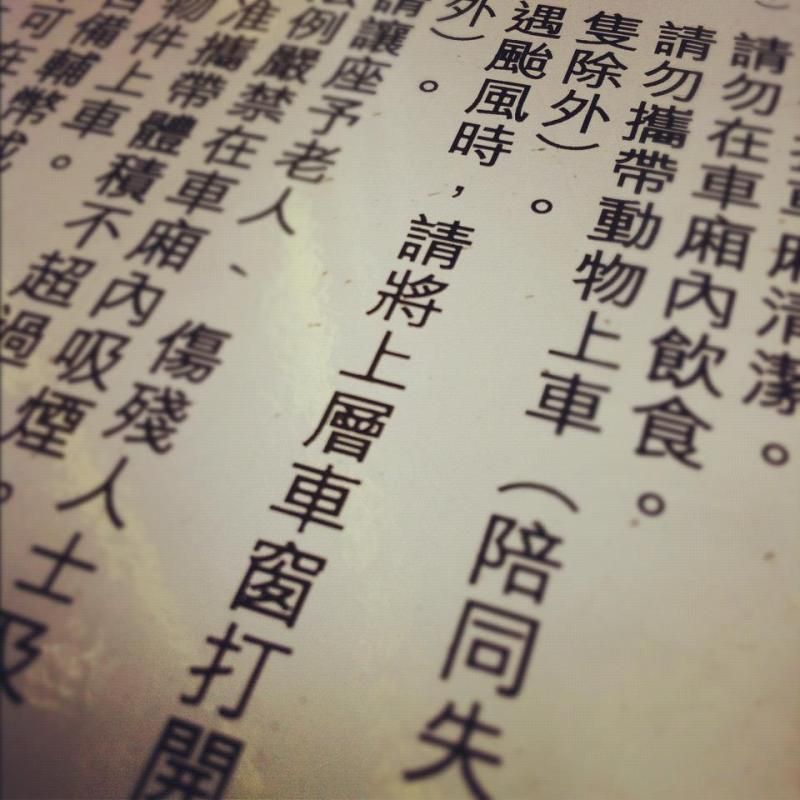 車廂清潔。
請勿在車廂內飲食。
請勿攜帶動物上車（陪同失
隻除外）。
遇颱風時，請將上層車窗打開
外）。
請讓座予老人、傷殘人士及
法例嚴禁在車廂內吸煙。
准攜帶體積不超過
物件上車。
備輔幣
可在